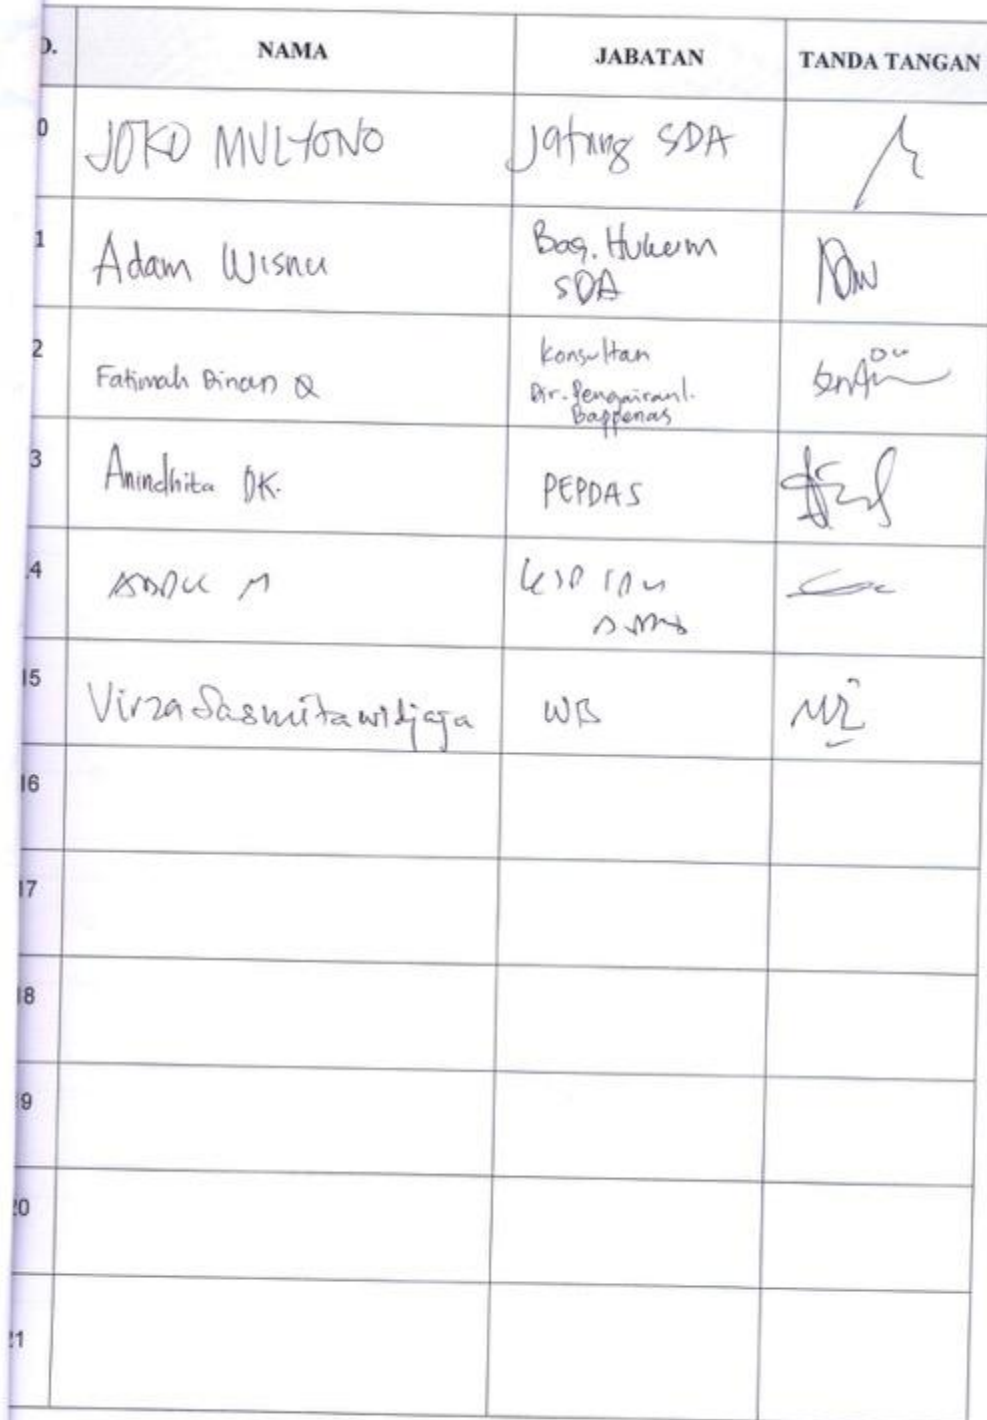 O. NAMA JABATAN TANDA TANGAN
0 JOKO MULYONO Jatung SDA
1 Adam Wisnu Bag. Hukum
SDA
2 Fatimah Dinan Q Konsultan
Dir. Pengairan
Bappenas
3 Anindhita DK. PEPDAS
4
15 Virza Sasmitawidjaja WB
16
17
18
19
20
21